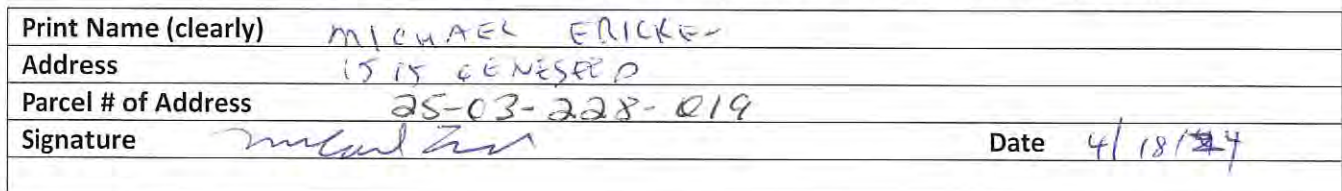 Print Name (clearly) MICHAEL ERICKE
Address 1515 GENESEE
Parcel # of Address 25-03-228-019
Signature
Date 4/18/24